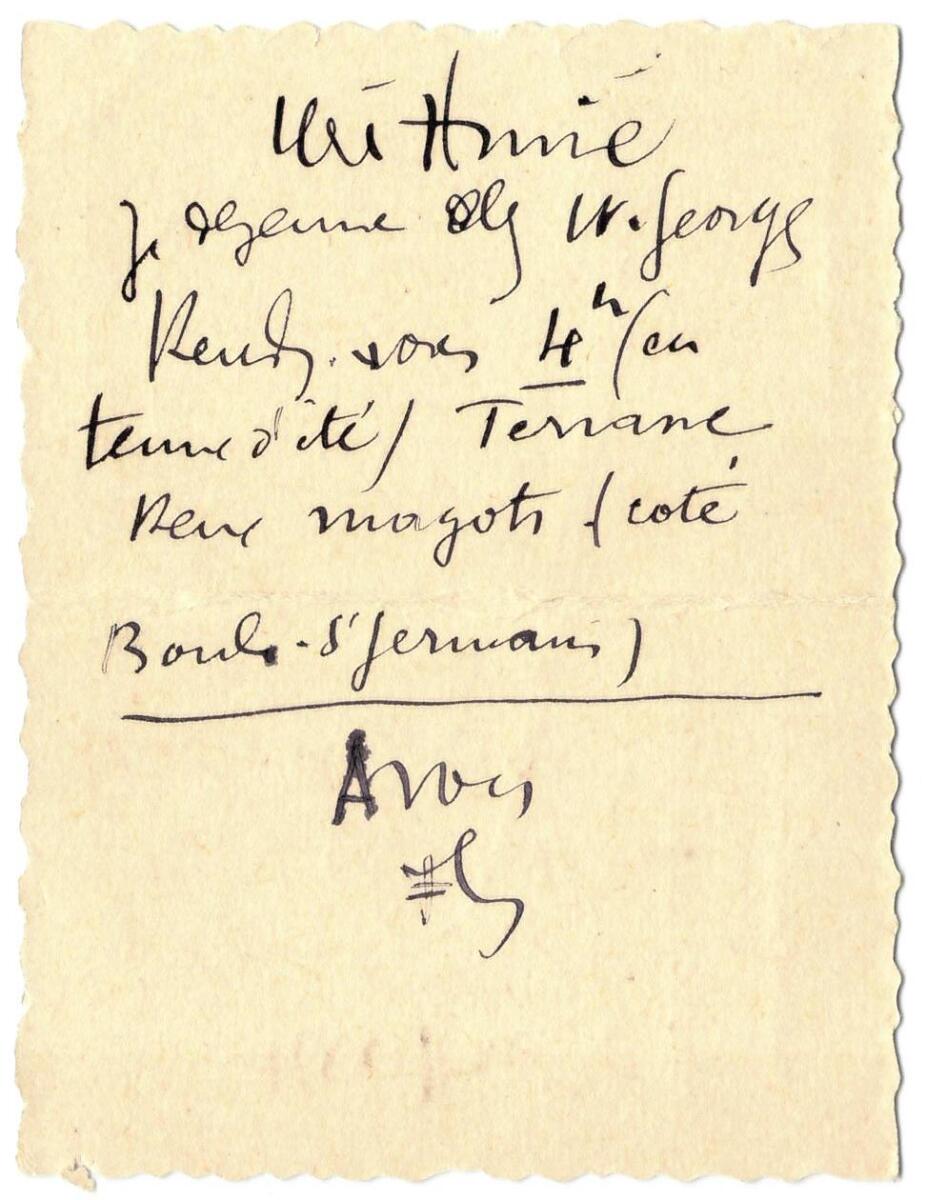 je dejeune chez W. George
Rendez-vous 4h (en
tenue d'été) Terrasse
Deux magots (coté
Boule.-St Germain)
A vous